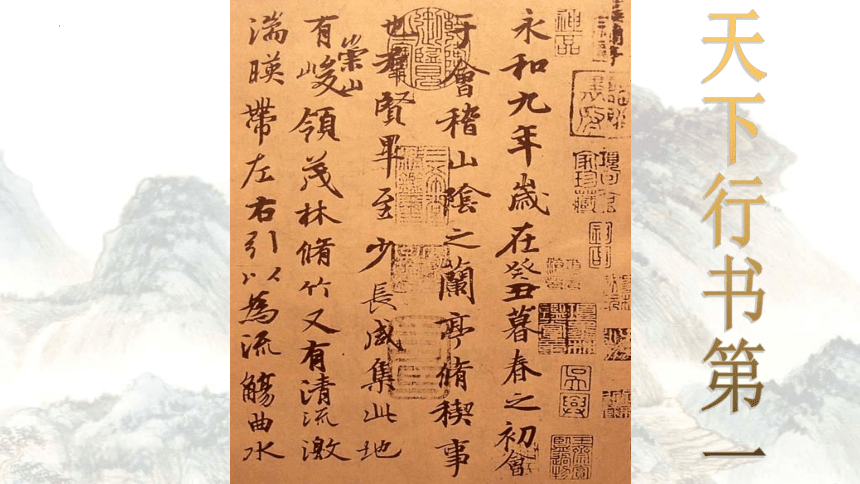 永和九年歲在癸丑暮春之初會
于會稽山陰之蘭亭脩稧事
也羣賢畢至少長咸集此地
有崇山峻領茂林脩竹又有清流激
湍暎帶左右引以為流觴曲水
天下行书第一
神品